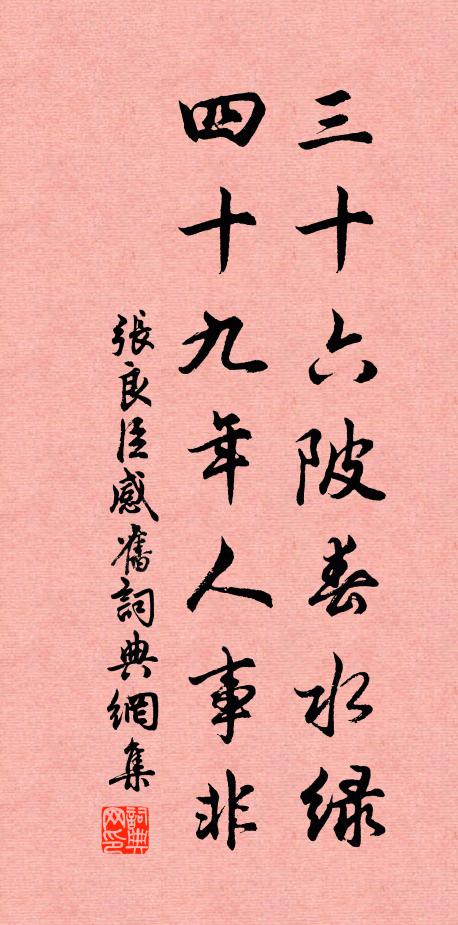 三十六陂春水緑
四十九年人事非
張良臣感舊詞典網集
詞典網印